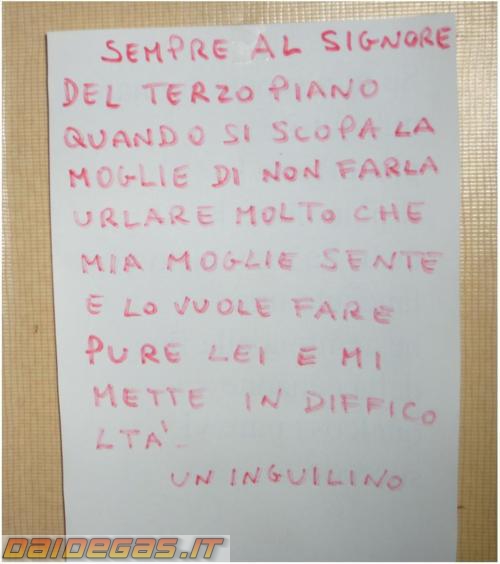 SEMPRE AL SIGNORE
DEL TERZO PIANO
QUANDO SI SCOPA LA
MOGLIE DI NON FARLA
URLARE MOLTO CHE
MIA MOGLIE SENTE
E LO VUOLE FARE
PURE LEI E MI
METTE IN DIFFICO
LTA'
UN INGUILINO
DAIDEGAS.IT